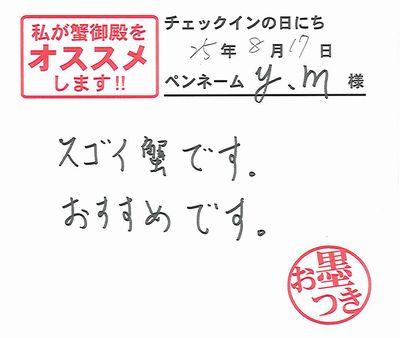 私が蟹御殿を
オススメ
します!!
チェックインの日にち
25年8月17日
ペンネーム y.m 様
スゴイ蟹です。
おすすめです。
お墨つき